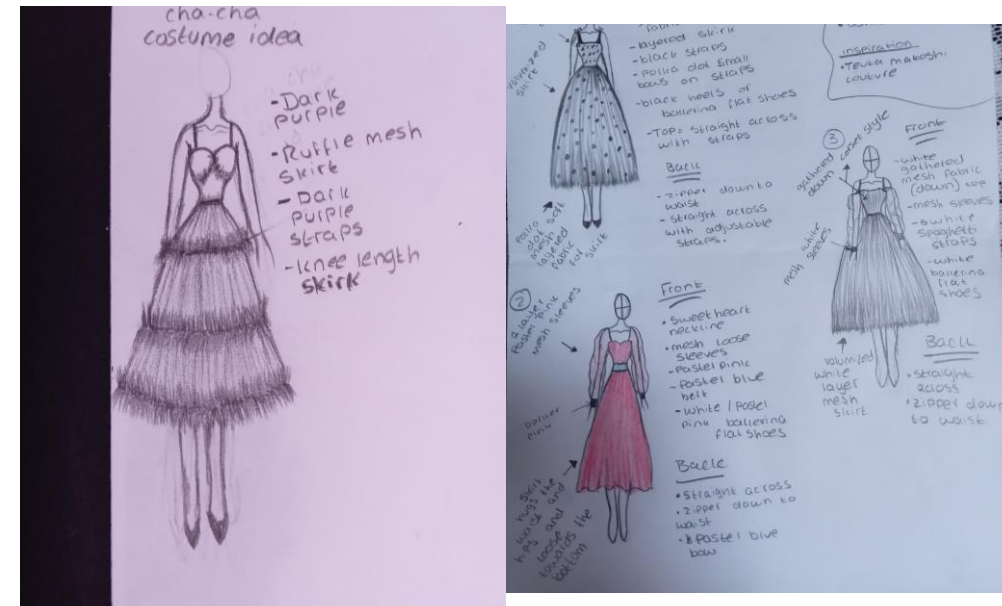 cha-cha
costume idea
-Dark
purple
-Ruffle mesh
skirt
-Dark
purple
straps
-knee length
skirk
volumized
skirt
fabric
-layered skirk
-black straps
-polka dot small
bows on straps
-black heels or
ballerina flat shoes
-TOP= straight across
with straps
Back
-zipper down to
waist
-straight across
with adjustable
straps.
Polka
dot soft
mesh
layered
fabric
for skirt
inspiration
•Teuta matoshi
couture
3
Front
gathered corset style
down
-white
gathered
mesh fabric
(down) top
-mesh sleeves
-white
spaghetti
straps
-white
ballerina
flat
shoes
mesh white
sleeves
volumized
white
layer
mesh
skirt
Back
•straight
across
•zipper down
to waist
2
2 layer
Pastel pink
mesh sleeves
Front
•sweetheart
neckline
•mesh loose
sleeves
-pastel pink
-pastel blue
belt
-white / pastel
pink ballerina
flat shoes
Darker
pink
skirt
hugs the
waist and
hips and
loose
towards the
bottom
Back
•straight across
•zipper down to
waist
•pastel blue
bow